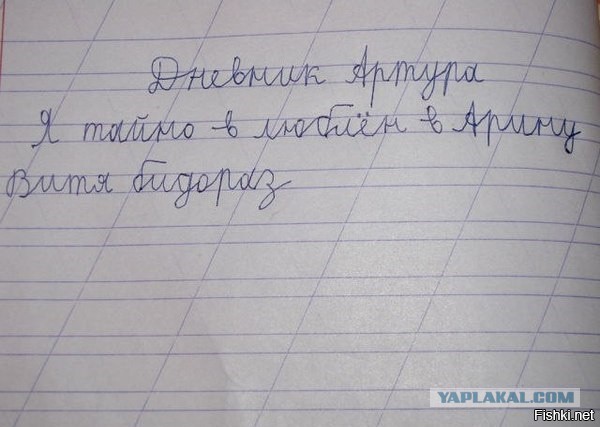 Дневник Артура
Я тайно в люблён в Арину
Витя бидораз
YAPLAKAL.COM
Fishki.net